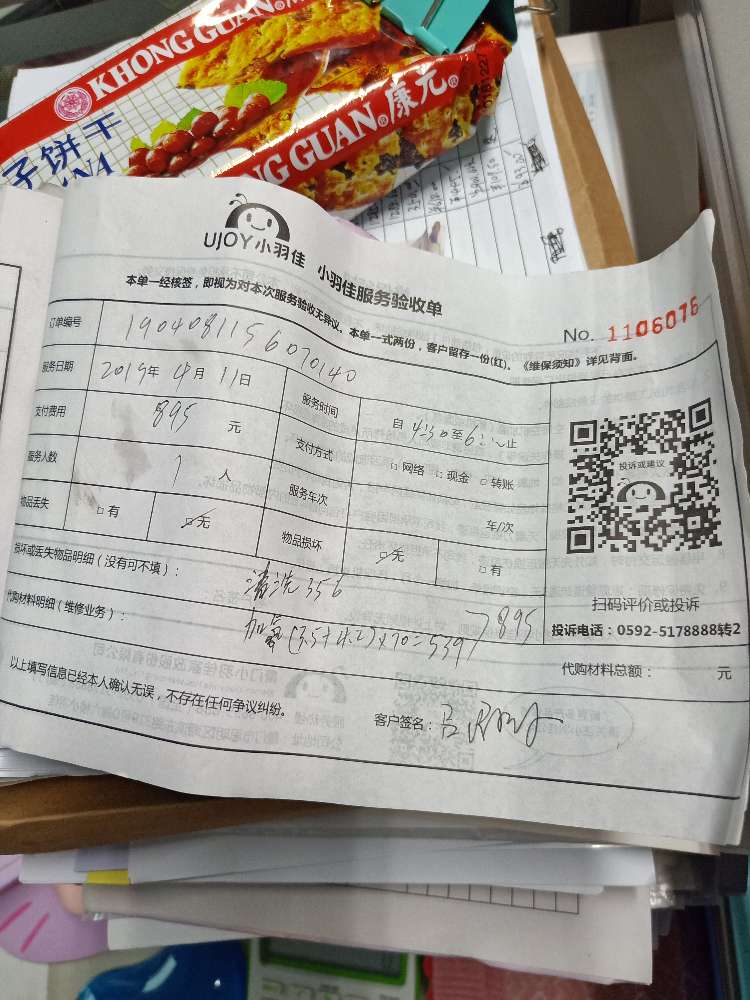 KHONG GUAN
KHONG GUAN 康元
子饼干
UJOY小羽佳 小羽佳服务验收单
No. 1106076
本单一经核签，即视为对本次服务验收无异议。本单一式两份，客户留存一份(红)。《维保须知》详见背面。
订单编号 1904081156070140
服务日期 2019年 4月 11日 服务时间 自 4:30至6:
止
支付费用 895 元 支付方式 □网络 □现金 □转账
服务人数 1 人 服务车次 车/次
物品丢失 □有 □无 物品损坏 □无 □有
投诉或建议
扫码评价或投诉
投诉电话：0592-5178888转2
损坏或丢失物品明细（没有可不填）： 清洗 356
代购材料明细（维修业务）： 加氟(3.5+4.2)×70=539 895
代购材料总额： 元
以上填写信息已经本人确认无误，不存在任何争议纠纷。
客户签名：